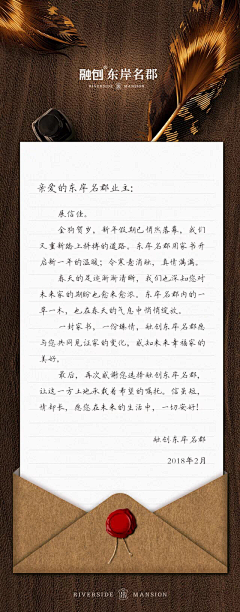 融创 东岸名郡
RIVERSIDE MANSION
亲爱的东岸名郡业主：
展信佳。
金狗贺岁，新年假期已悄然落幕，我们
又重新踏上拼搏的道路。东岸名郡用家书开
启新一年的温暖：令寒意消融，真情满满。
春天的足迹渐渐清晰，我们也深知您对
未来家的期盼也愈来愈浓。东岸名郡内的一
草一木，也在春天的气息中悄悄绽放。
一封家书，一份炼情，融创东岸名郡愿
与您共同见证家的变化，感知未来幸福家的
美好。
最后，再次感谢您选择融创东岸名郡，
让这一方土地承载着希望的嘱托。信笺短，
情却长，愿您在未来的生活中，一切安好！
融创东岸名郡
2018年2月
RIVERSIDE MANSION